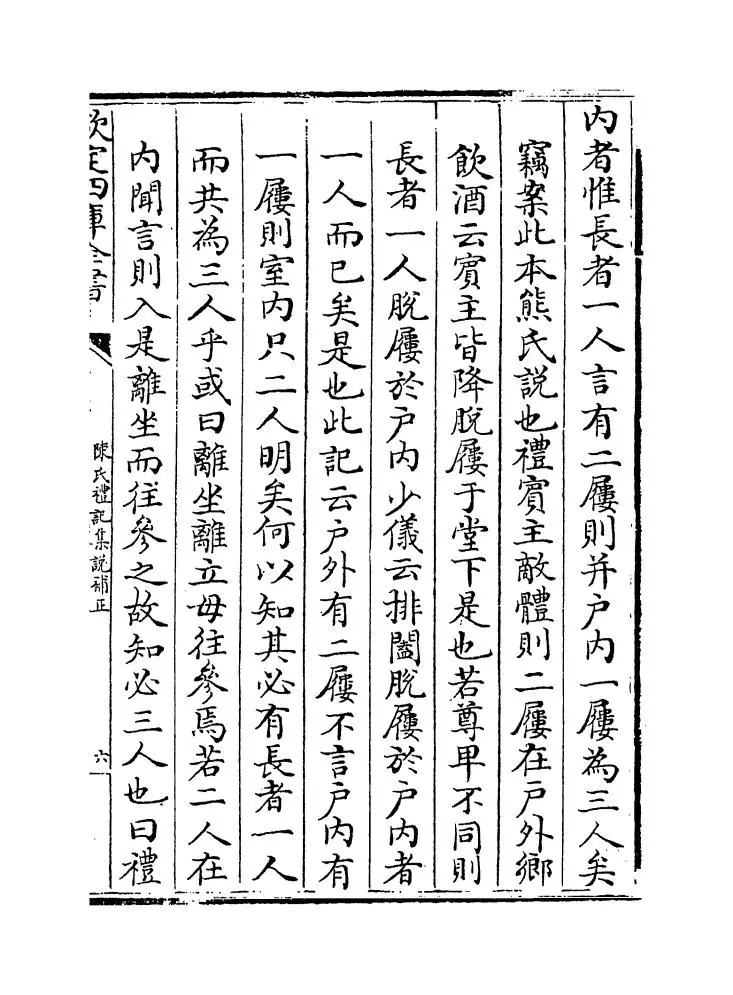 内者惟長者一人言有二屨則并户内一屨為三人矣
竊案此本熊氏説也禮賔主敵體則二屨在户外鄉
飲酒云賔主皆降脱屨于堂下是也若尊卑不同則
長者一人脱屨於户内少儀云排闔脱屨於户内者
一人而已矣是也此記云户外有二屨不言户内有
一屨則室内只二人明矣何以知其必有長者一人
而共為三人乎或曰離坐離立毋往參焉若二人在
内聞言則入是離坐而往參之故知必三人也曰禮
欽定四庫全書
陳氏禮記集説補正
六